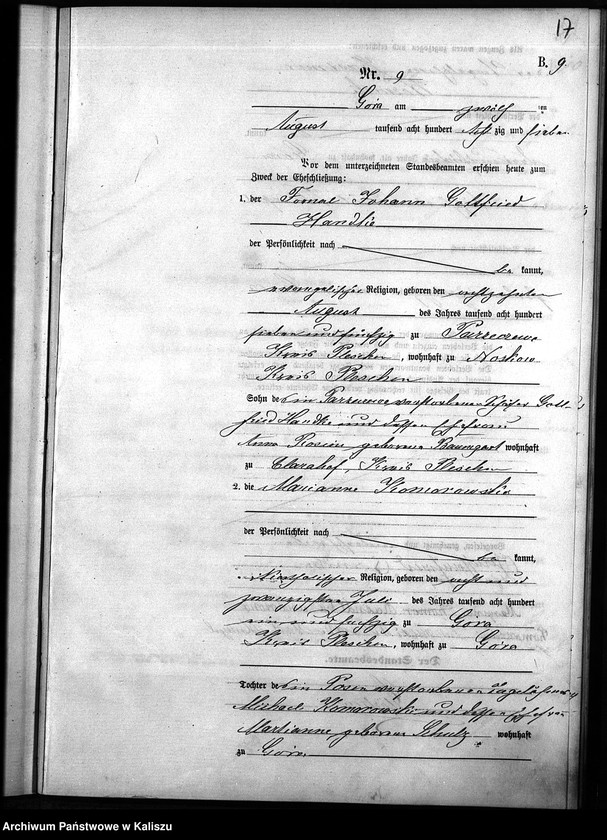 17
B. 9.
Nr. 9
Gora am zwölften
August tausend acht hundert achtzig und sieben
Vor dem unterzeichneten Standesbeamten erschien heute zum
Zweck der Eheschließung:
1. der Fornal Johann Gottfried
Handke
der Persönlichkeit nach
be kannt,
evangelischer Religion, geboren den achtzehnten
August des Jahres tausend acht hundert
sieben und fünfzig zu
Kreis Pleschen, wohnhaft zu Noskow
Kreis Pleschen
Sohn des in verstorbenen Schäfer Gott-
fried Handke und dessen Ehefrau
Anna Rosina geborene Baumgart wohnhaft
zu Clarahof, Kreis Pleschen
2. die Marianne Komorowska
der Persönlichkeit nach
be kannt,
katholischer Religion, geboren den acht und
zwanzigsten Juli des Jahres tausend acht hundert
ein und sechzig zu Gora
Kreis Pleschen, wohnhaft zu Gora
Tochter des in Posen verstorbenen Tagelöhners
Michael Komorowski und dessen Ehefrau
Marianne geborene Schulz wohnhaft
zu Gora
Archiwum Państwowe w Kaliszu